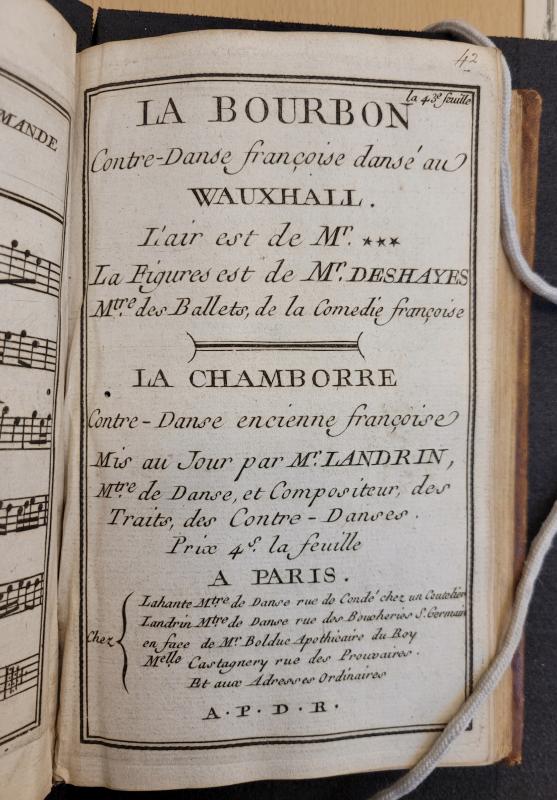 MANDE
42
la 43e feuille
LA BOURBON
Contre-Danse françoise dansé au
WAUXHALL.
L'air est de Mr. ***
La Figures est de Mr. DESHAYES
Mtre. des Ballets, de la Comedie françoise
LA CHAMBORRE
Contre-Danse encienne françoise
Mis au Jour par Mr. LANDRIN,
Mtre. de Danse, et Compositeur, des
Traits, des Contre-Danses.
Prix 4s. la feuille
A PARIS.
Chez
Lahante Mtre de Danse rue de Condé chez un Coutelier
Landrin Mtre de Danse rue des Boucheries S. Germain
en face de Mr. Bolduc Apothicaire du Roy
Melle Castagnery rue des Prouvaires.
Et aux Adresses Ordinaires
A.P.D.R.